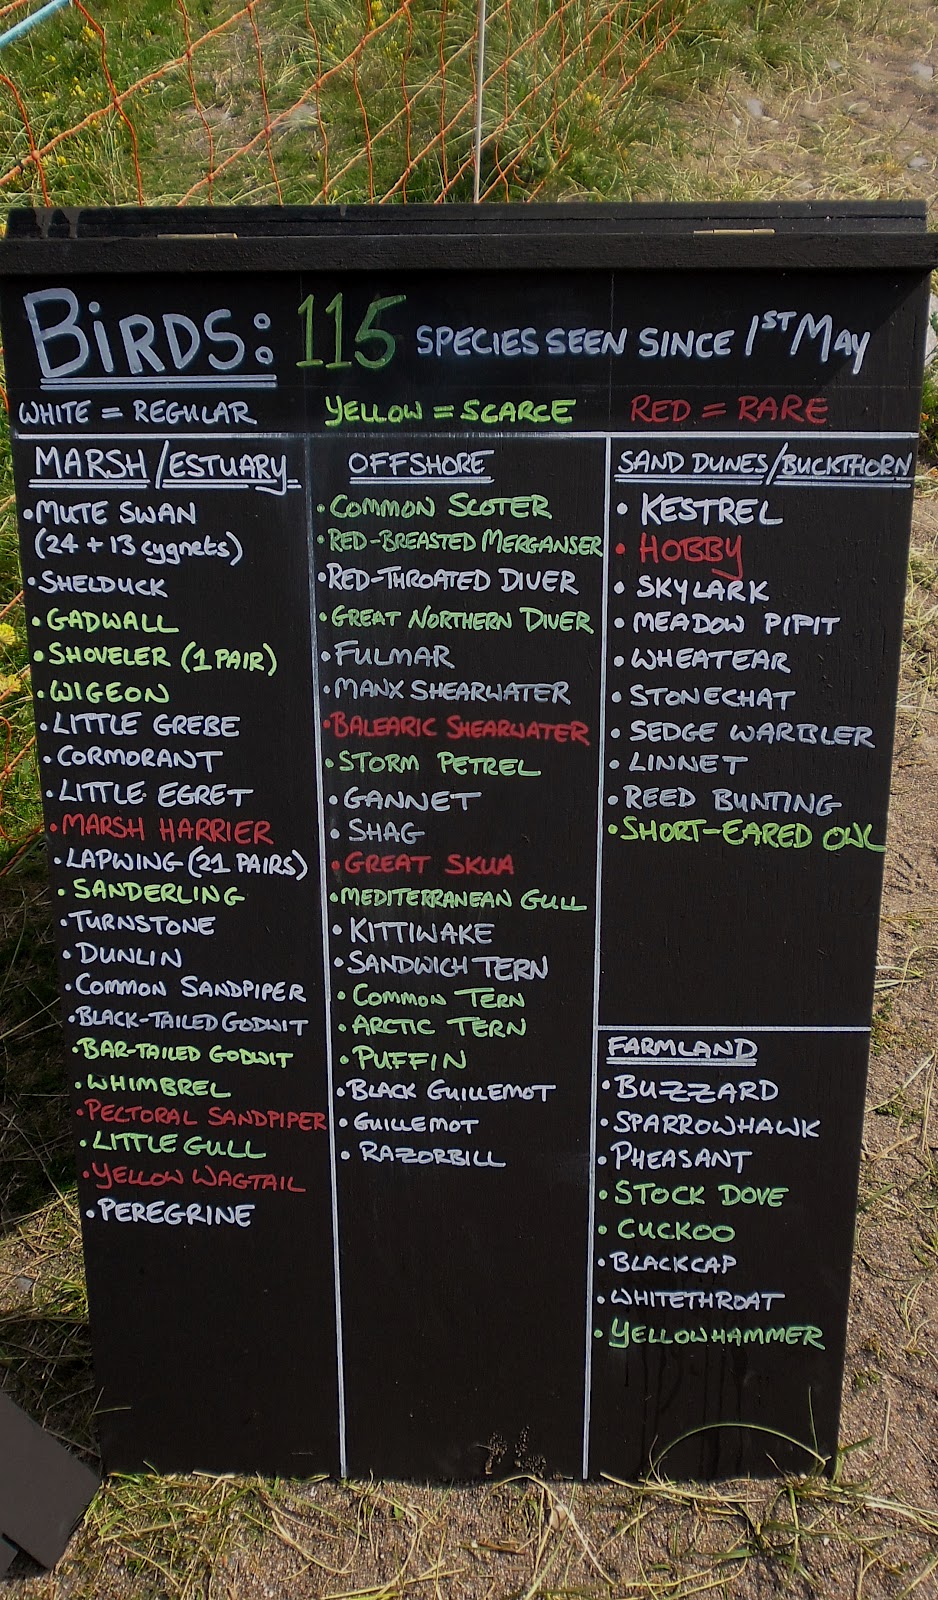 BIRDS: 115 SPECIES SEEN SINCE 1ST MAY
WHITE = REGULAR YELLOW = SCARCE RED = RARE
MARSH/ESTUARY
• MUTE SWAN
(24 + 13 cygnets)
• SHELDUCK
• GADWALL
• SHOVELER (1 PAIR)
• WIGEON
• LITTLE GREBE
• CORMORANT
• LITTLE EGRET
• MARSH HARRIER
• LAPWING (21 PAIRS)
• SANDERLING
• TURNSTONE
• DUNLIN
• COMMON SANDPIPER
• BLACK-TAILED GODWIT
• BAR-TAILED GODWIT
• WHIMBREL
• PECTORAL SANDPIPER
• LITTLE GULL
• YELLOW WAGTAIL
• PEREGRINE
OFFSHORE
• COMMON SCOTER
• RED-BREASTED MERGANSER
• RED-THROATED DIVER
• GREAT NORTHERN DIVER
• FULMAR
• MANX SHEARWATER
• BALEARIC SHEARWATER
• STORM PETREL
• GANNET
• SHAG
• GREAT SKUA
• MEDITERRANEAN GULL
• KITTIWAKE
• SANDWICH TERN
• COMMON TERN
• ARCTIC TERN
• PUFFIN
• BLACK GUILLEMOT
• GUILLEMOT
• RAZORBILL
SAND DUNES/BUCKTHORN
• KESTREL
• HOBBY
• SKYLARK
• MEADOW PIPIT
• WHEATEAR
• STONECHAT
• SEDGE WARBLER
• LINNET
• REED BUNTING
• SHORT-EARED OWL
FARMLAND
• BUZZARD
• SPARROWHAWK
• PHEASANT
• STOCK DOVE
• CUCKOO
• BLACKCAP
• WHITETHROAT
• YELLOWHAMMER